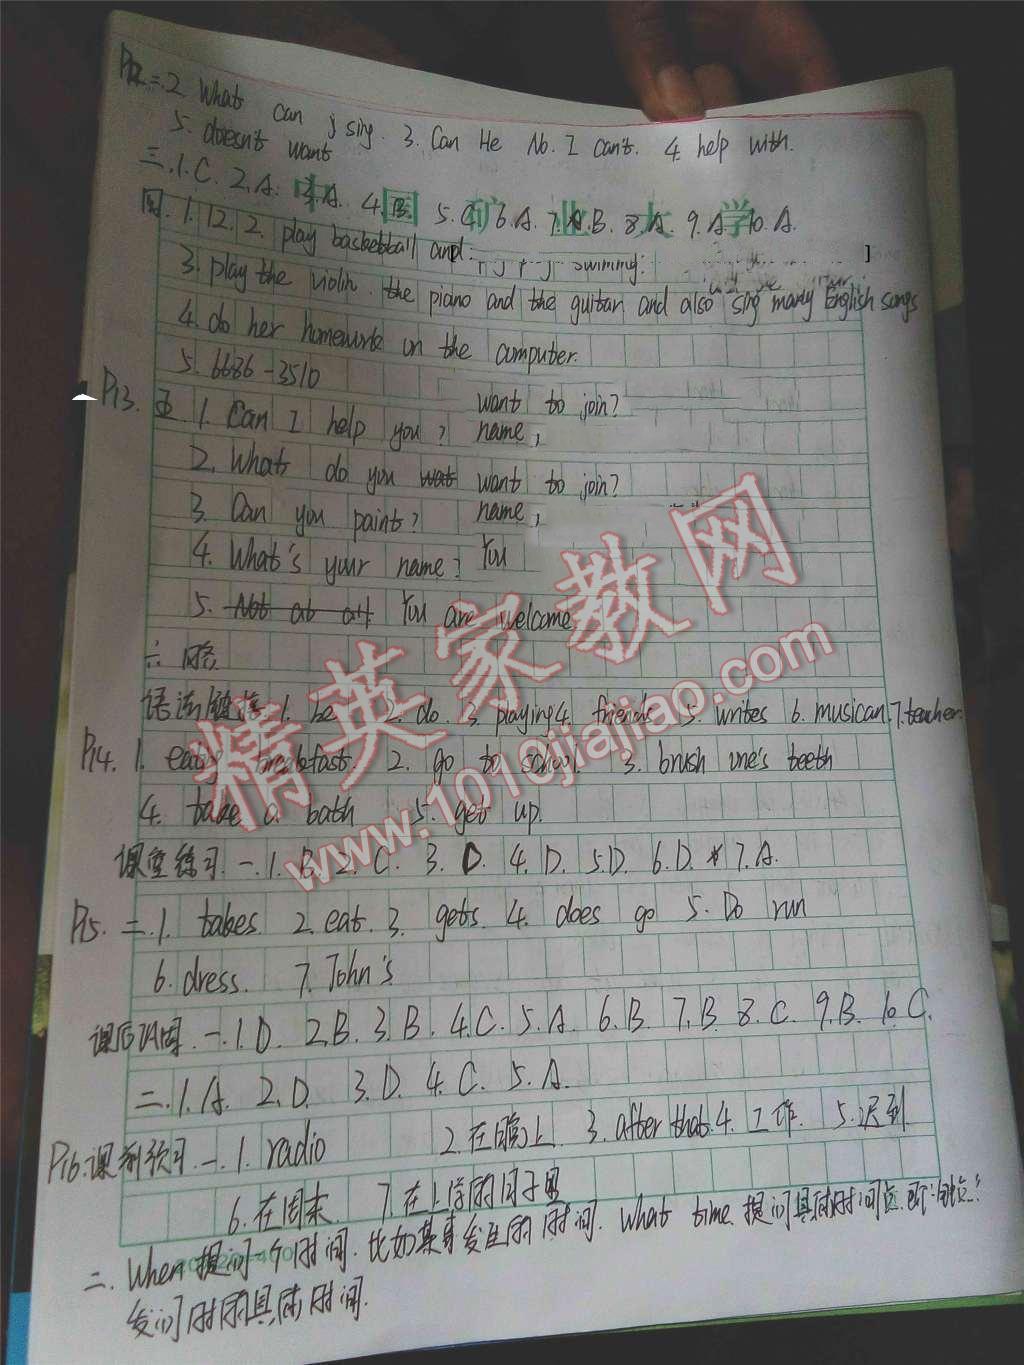 P12 二.2 What can sing. 3. Can He No. I can't. 4. help with.
5. doesn't want
三.1.C. 2.A. 3.A. 4.B. 5.C. 6.A. 7.B. 8.A. 9.A. 10.A.
中国矿业大学
四.1. 12. 2. play basketball and swimming.
3. play the violin. the piano and the guitar and also sing many English songs
4. do her homework on the computer.
5. 6686-3510
P13. 五 1. Can I help you? want to join?
name,
2. What do you wat want to join?
3. Can you paint? name,
4. What's your name? You
5. Not at all You are welcome
六 略
语法链接 1. be 2. do. 3. playing 4. friends 5. writes 6. musican. 7. teacher.
P14. 1. eating breakfast. 2. go to school. 3. brush one's teeth
4. take a bath 5. get up.
课堂练习 一.1. B. 2. C. 3. D. 4. D. 5.D. 6.D. 7.A.
P15. 二.1. takes 2. eat. 3. gets. 4. does go 5. Do run
6. dress. 7. John's
课后巩固 一.1. D. 2.B. 3.B. 4.C. 5.A. 6.B. 7.B. 8.C. 9.B. 10.C.
二.1.A. 2.D. 3.D. 4.C. 5.A.
P16.课前预习 一.1. radio 2.在晚上. 3. after that. 4. 工作. 5.迟到.
6.在周末. 7.在上学的日子里
二. When 提问一个时间.比如某事发生的时间. What time 提问具体时间点.
发问时的具体时间.
精英家教网
www.1010jiajiao.com